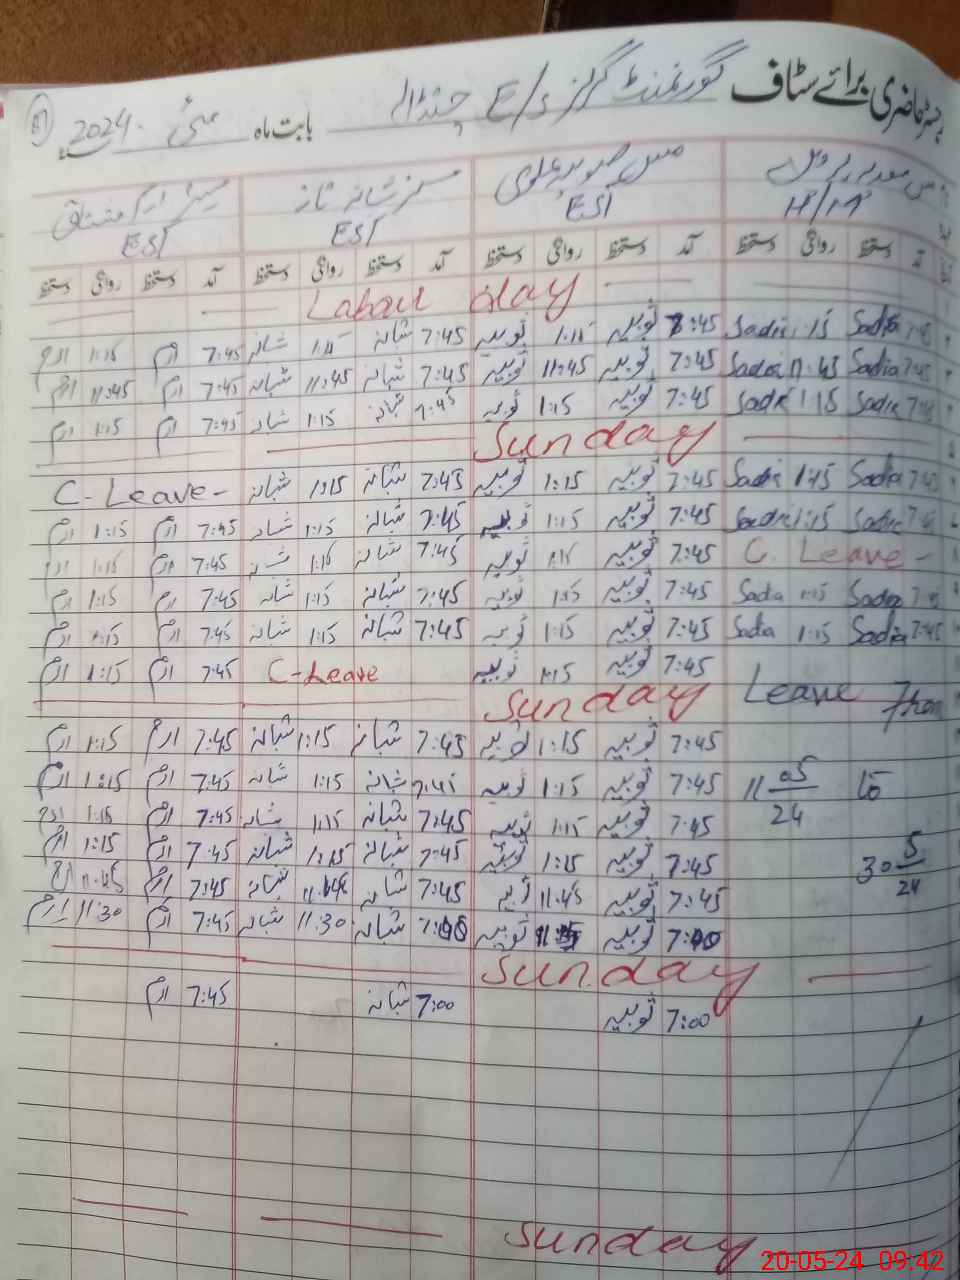 رجسٹر حاضری برائے سٹاف گورنمنٹ گرلز E/S چندالہ بابت ماہ مئی 2024
مس سعدیہ مس ثوبیہ علوی مسز شبانہ ناز مسز ارم مشتاق
H/M EST EST EST
آمد دستخط روانگی دستخط آمد دستخط روانگی دستخط آمد دستخط روانگی دستخط آمد دستخط روانگی دستخط
Labour day
7:45 Sadia 1:15 Sadia 7:45 ثوبیہ 1:15 ثوبیہ 7:45 شبانہ 1:15 شبانہ 7:45 ارم 1:15 ارم
7:45 Sadia 11:45 Sadia 7:45 ثوبیہ 11:45 ثوبیہ 7:45 شبانہ 11:45 شبانہ 7:45 ارم 11:45 ارم
7:45 Sadia 1:15 Sadia 7:45 ثوبیہ 1:15 ثوبیہ 7:45 شبانہ 1:15 شبانہ 7:45 ارم 1:15 ارم
Sunday
7:45 Sadia 1:15 Sadia 7:45 ثوبیہ 1:15 ثوبیہ 7:45 شبانہ 1:15 شبانہ C-Leave-
7:45 Sadia 1:15 Sadia 7:45 ثوبیہ 1:15 ثوبیہ 7:45 شبانہ 1:15 شبانہ 7:45 ارم 1:15 ارم
C. Leave - 7:45 ثوبیہ 1:15 ثوبیہ 7:45 شبانہ 1:15 شبانہ 7:45 ارم 1:15 ارم
7:45 Sadia 1:15 Sadia 7:45 ثوبیہ 1:15 ثوبیہ 7:45 شبانہ 1:15 شبانہ 7:45 ارم 1:15 ارم
7:45 Sadia 1:15 Sadia 7:45 ثوبیہ 1:15 ثوبیہ 7:45 شبانہ 1:15 شبانہ 7:45 ارم 1:15 ارم
7:45 ثوبیہ 1:15 ثوبیہ C-Leave 7:45 ارم 1:15 ارم
Sunday Leave From
7:45 ثوبیہ 1:15 ثوبیہ 7:45 شبانہ 1:15 شبانہ 7:45 ارم 1:15 ارم
11 05/24 to 7:45 ثوبیہ 1:15 ثوبیہ 7:45 شبانہ 1:15 شبانہ 7:45 ارم 1:15 ارم
7:45 ثوبیہ 1:15 ثوبیہ 7:45 شبانہ 1:15 شبانہ 7:45 ارم 1:15 ارم
30 5/24 7:45 ثوبیہ 1:15 ثوبیہ 7:45 شبانہ 1:15 شبانہ 7:45 ارم 1:15 ارم
7:45 ثوبیہ 11:45 ثوبیہ 7:45 شبانہ 11:45 شبانہ 7:45 ارم 11:45 ارم
7:00 ثوبیہ ثوبیہ 7:00 شبانہ 11:30 شبانہ 7:45 ارم 11:30 ارم
Sunday
7:00 ثوبیہ 7:00 شبانہ 7:45 ارم
Sunday
20-05-24 09:42